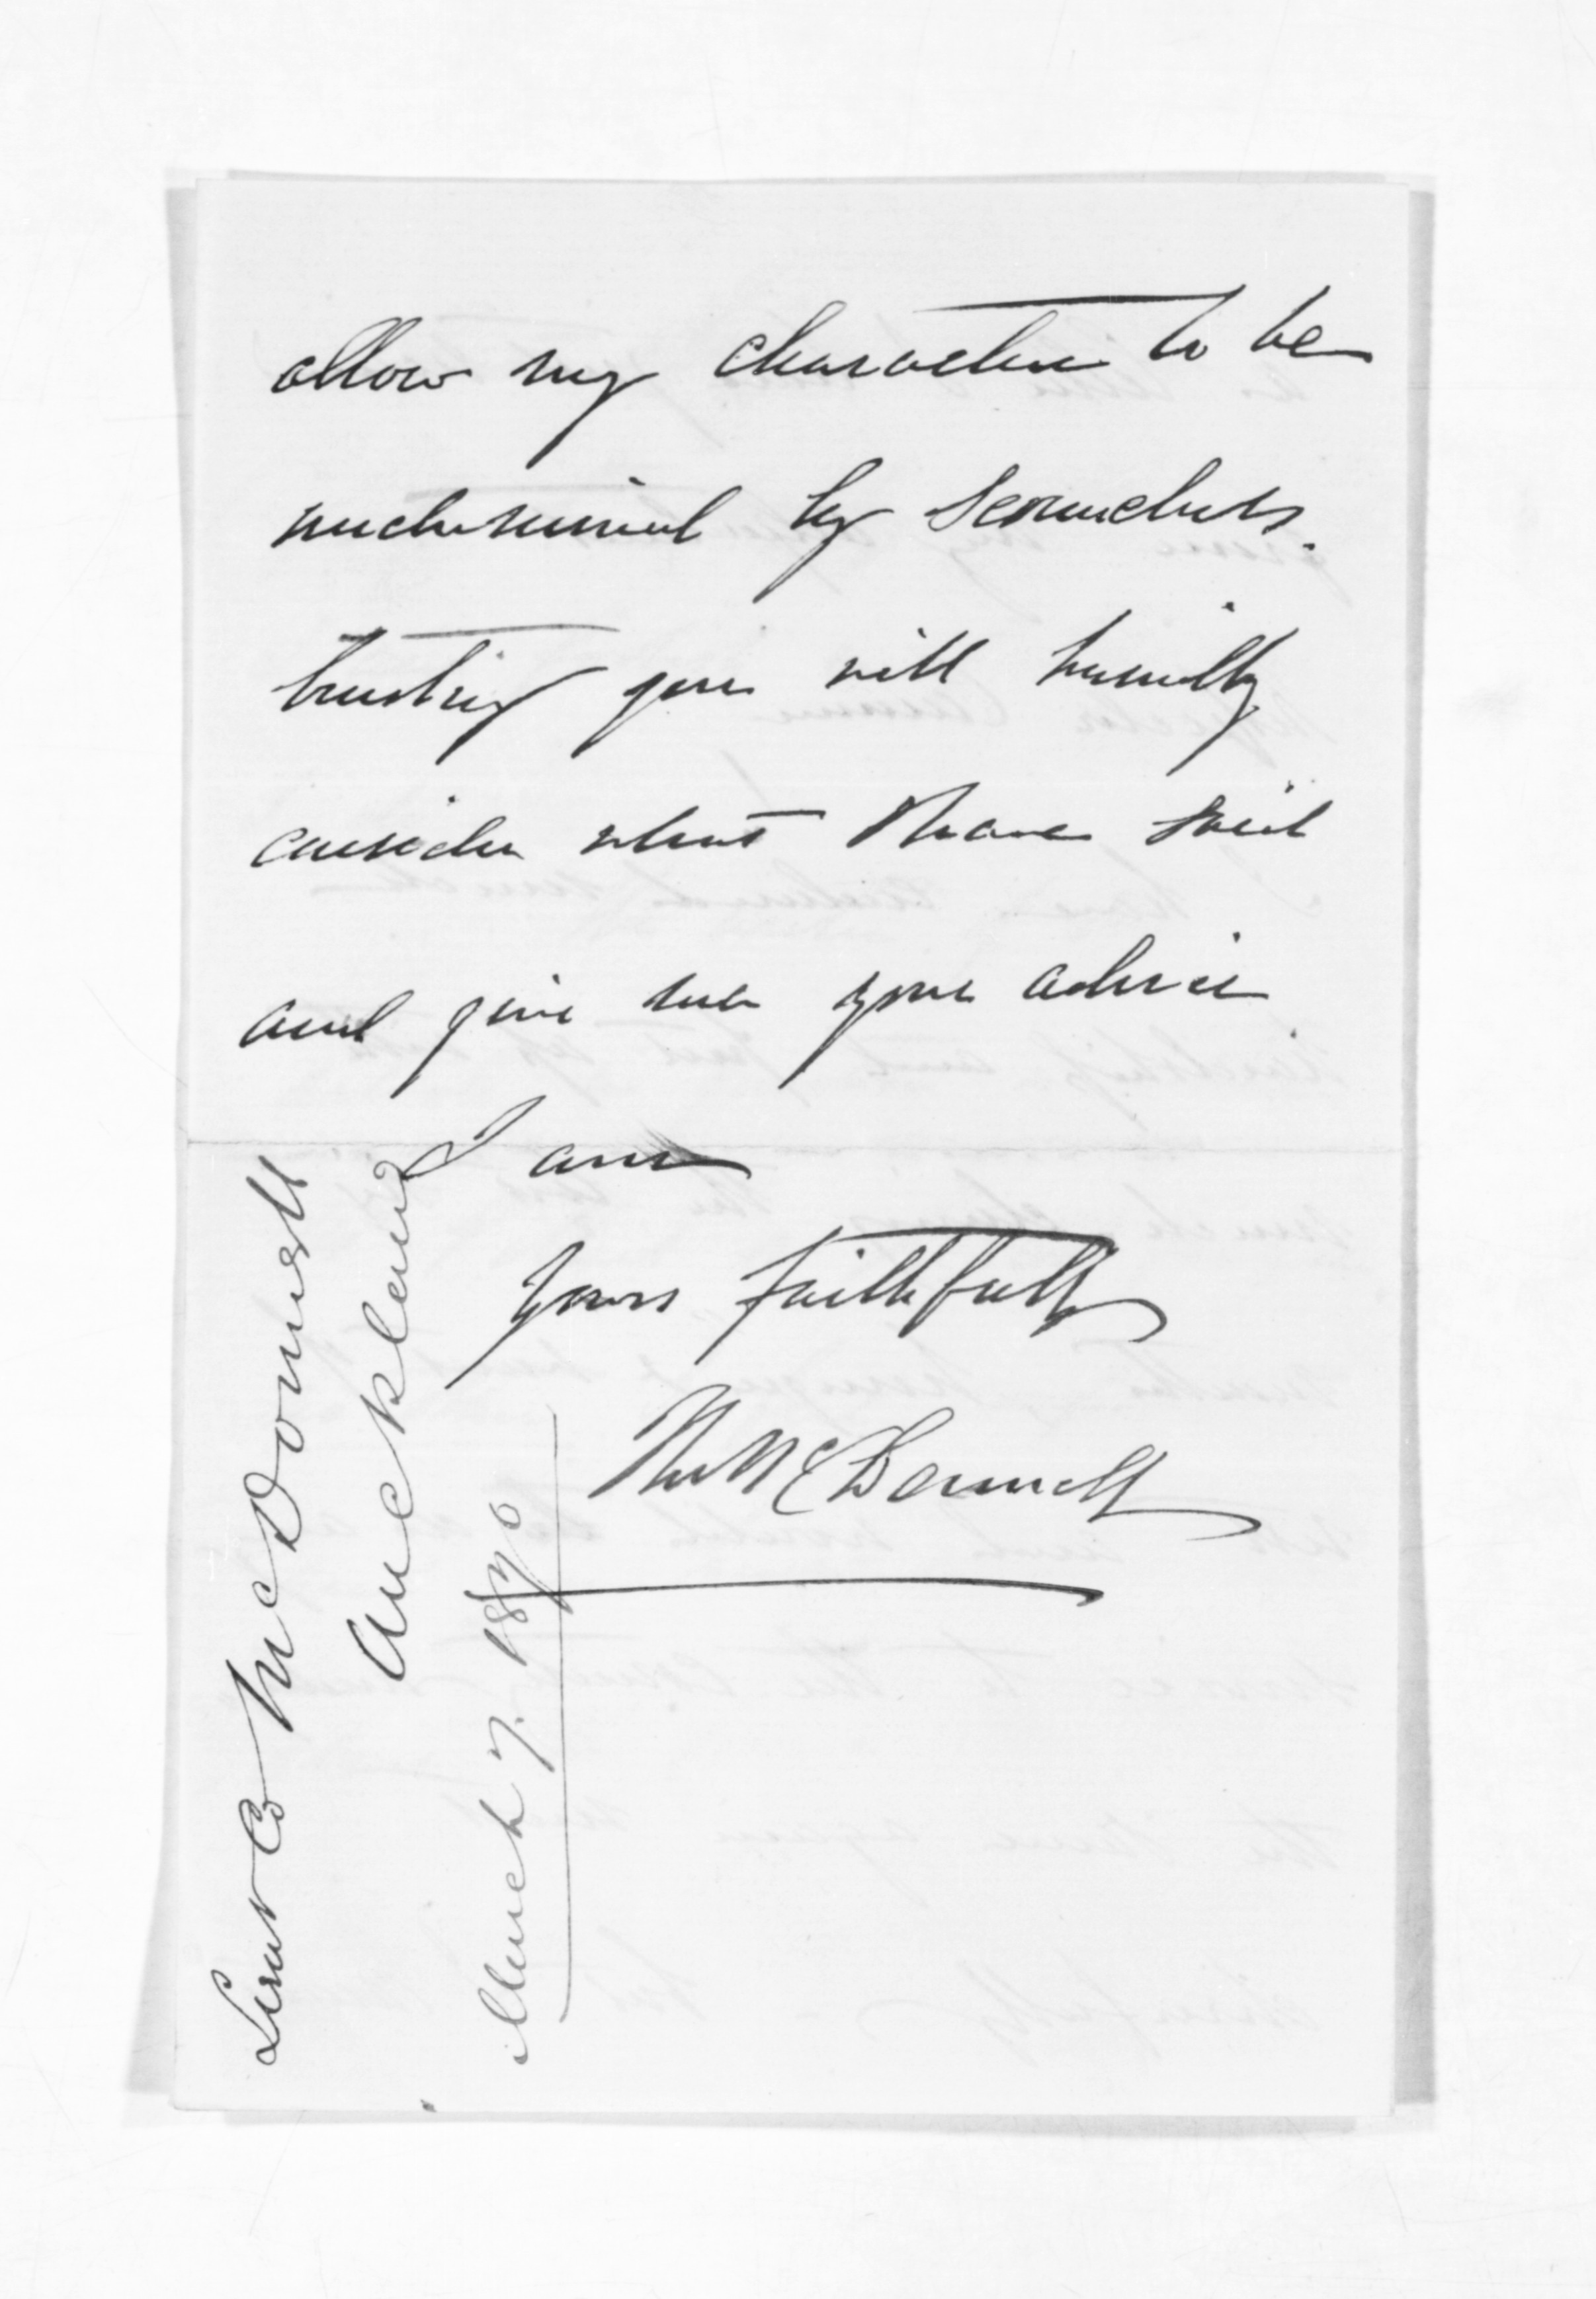 allow my character to be
undermined by scoundrels.
trusting you will kindly
consider what I have said
and give me your advice
I am
Yours faithfully
Thos McDonnell
Lieut Col McDonnell
Auckland
March 7. 1870